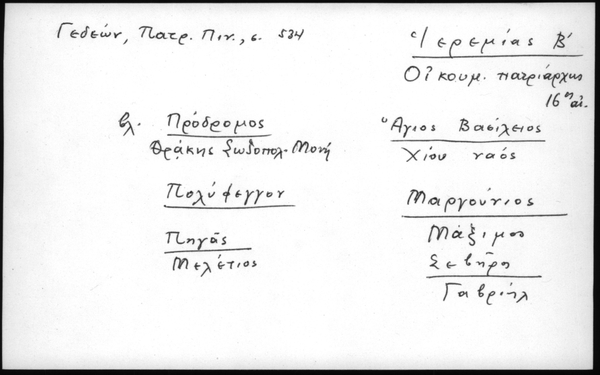 Γεδεών, Πατρ. Πιν., σ. 534
Ἱερεμίας Β'
Οἰκουμ. πατριάρχης
16ης αἰ.
βλ. Πρόδρομος
Θράκης Σωζοπολ. Μονή
Πολύφεγγον
Πηγᾶς
Μελέτιος
Ἅγιος Βασίλειος
Χίου ναός
Μαργούνιος
Μάξιμος
Σεβῆρος
Γαβριήλ